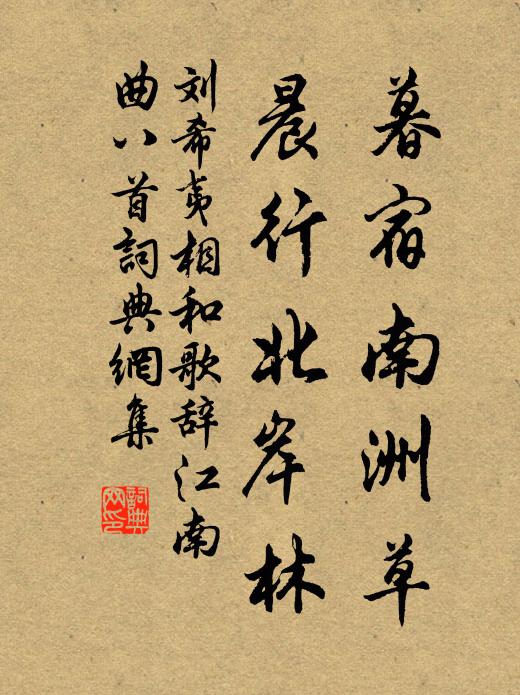 暮宿南洲草
晨行北岸林
刘希夷相和歌辞江南
曲八首詞典網集
詞典
网印